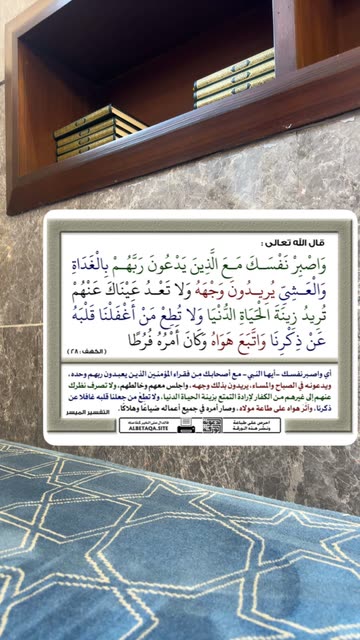 قال الله تعالى :
وَاصْبِرْ نَفْسَكَ مَعَ الَّذِينَ يَدْعُونَ رَبَّهُمْ بِالْغَدَاةِ
وَالْعَشِيِّ يُرِيدُونَ وَجْهَهُ وَلَا تَعْدُ عَيْنَاكَ عَنْهُمْ
تُرِيدُ زِينَةَ الْحَيَاةِ الدُّنْيَا وَلَا تُطِعْ مَنْ أَغْفَلْنَا قَلْبَهُ
عَنْ ذِكْرِنَا وَاتَّبَعَ هَوَاهُ وَكَانَ أَمْرُهُ فُرُطًا
( الكهف : ٢٨ )
أي واصبر نفسك -أيها النبي- مع أصحابك من فقراء المؤمنين الذين يعبدون ربهم وحده،
ويدعونه في الصباح والمساء، يريدون بذلك وجهه، واجلس معهم وخالطهم، ولا تصرف نظرك
عنهم إلى غيرهم من الكفار لإرادة التمتع بزينة الحياة الدنيا، ولا تطع من جعلنا قلبه غافلا عن
ذكرنا، وآثر هواه على طاعة مولاه، وصار أمره في جميع أعماله ضياعًا وهلاكًا.
التفسير الميسر
احرص على طباعة
ونشر هذه الورقة
فالدال على الخير كفاعله
ALBETAQA.SITE